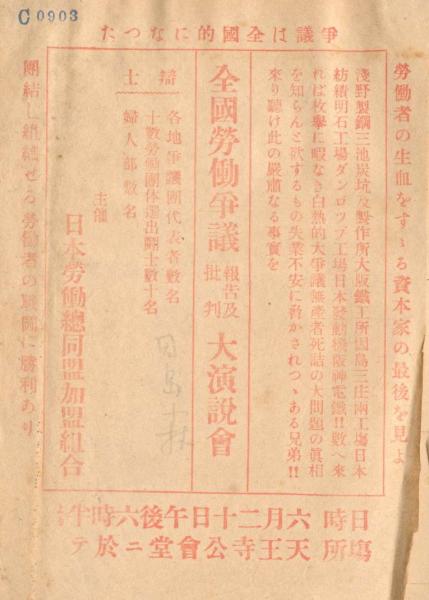 C 0903
爭議は全國的になつた
勞働者の生血をすゝる資本家の最後を見よ
淺野製鋼三池炭坑及製作所大阪鐵工所因島三庄兩工場日本
紡績明石工場ダンロツプ工場日本發動機阪神電鐵!!數へ來
れば枚擧に暇なき白熱的大爭議無產者死詰の大問題の眞相
を知らんと欲するもの失業不安に脅かされつゝある兄弟!!
來り聽け此の嚴肅なる事實を
全國勞働爭議報告及批判大演說會
辯士
各地爭議團代表者數名
十數勞働團体選出鬪士數十名
婦人部數名
主催
日本勞働總同盟加盟組合
團結し組織せる勞働者の戰鬪に勝利あり
日時 六月二十日午後六時半
場所 天王寺公會堂ニ於テ